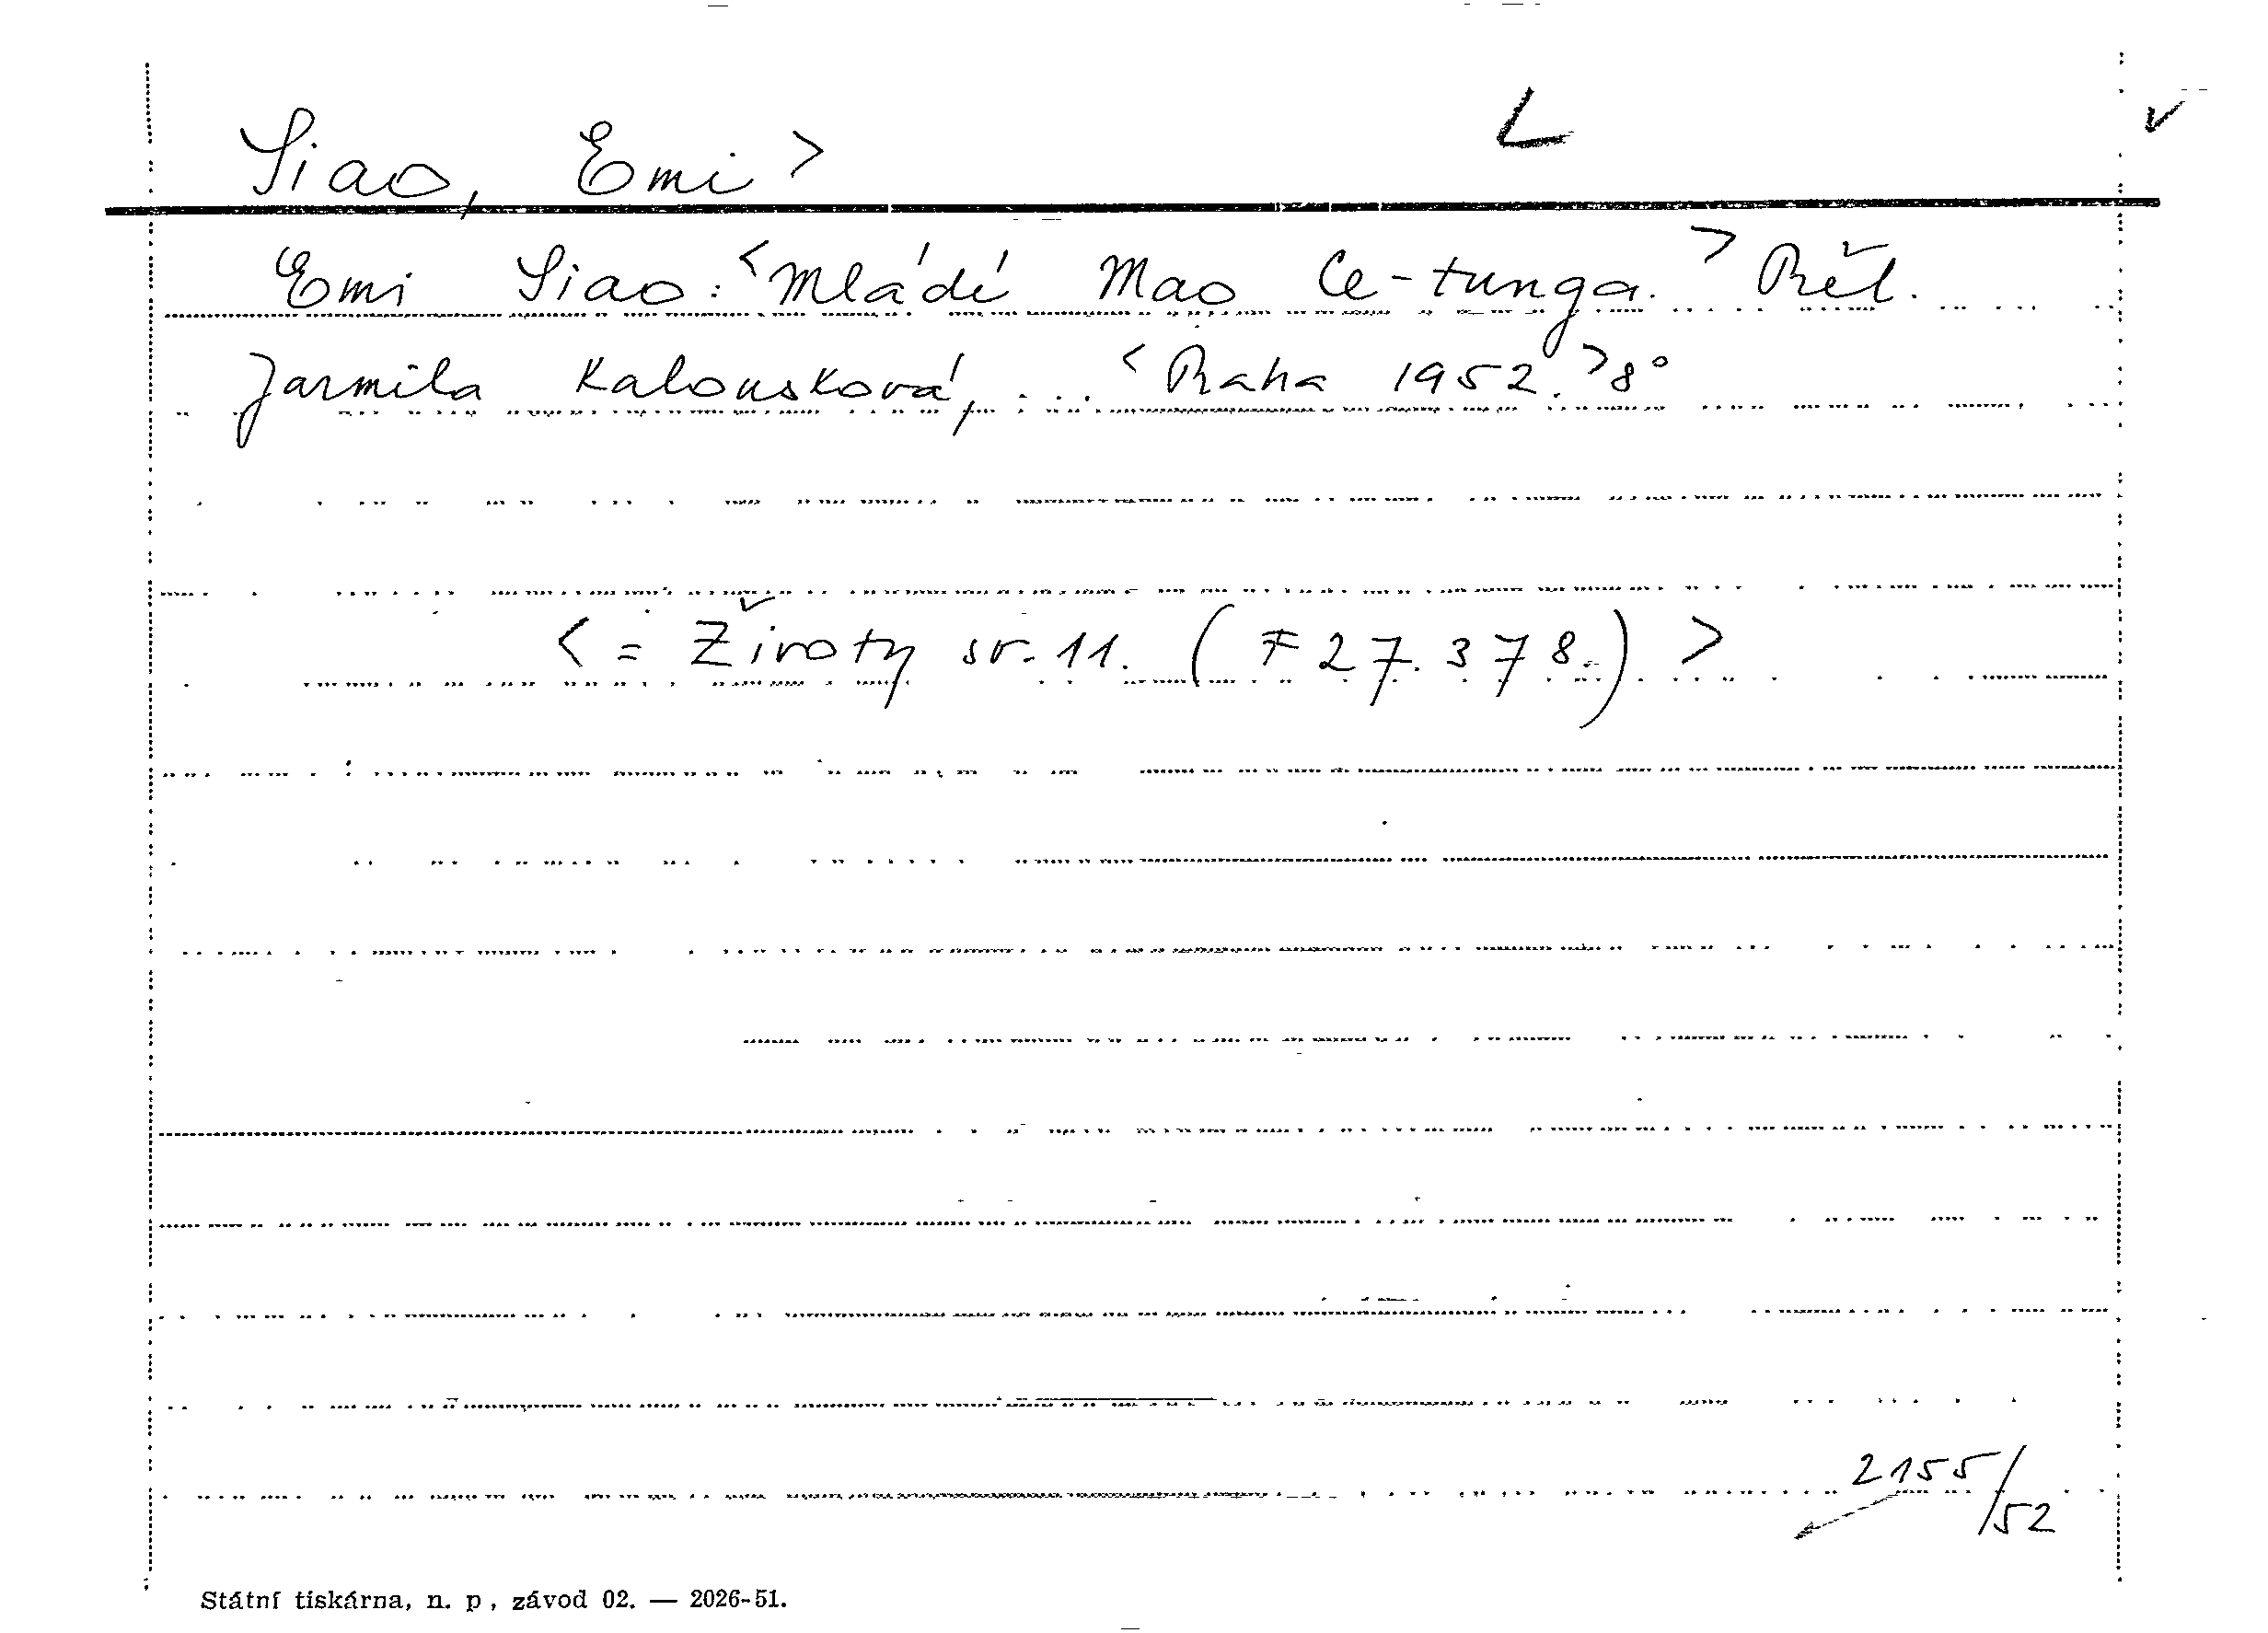 Siao, Emi > L v
Emi Siao: <Mládí Mao Ce-tunga.> Přel.
Jarmila Kalousková, ... <Praha 1952.> 8°
< = Životy sv. 11. (F 27.378.) >
2155/52
Státní tiskárna, n. p, závod 02. — 2026-51.